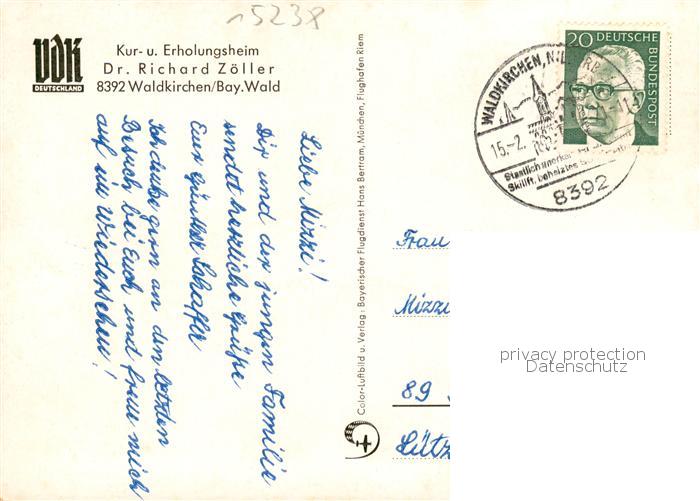 15238
VDK
DEUTSCHLAND
Kur- u. Erholungsheim
Dr. Richard Zöller
8392 Waldkirchen/Bay.Wald
Liebe Mizzi!
Dir und der jungen Familie
sendet herzliche Grüße
Eur Günther Schaffer
Ich denke gern an den letzten
Besuch bei Euch und freue mich
auf ein Wiedersehen!
Color-Luftbild u. Verlag: Bayerischer Flugdienst Hans Bertram, München, Flughafen Riem
WALDKIRCHEN, NIE
15.-2.
Staatlich anerkan
Skilift, beheiztes
8392
20 DEUTSCHE
BUNDESPOST
Frau
Mizzi
89
Lütz
privacy protection
Datenschutz